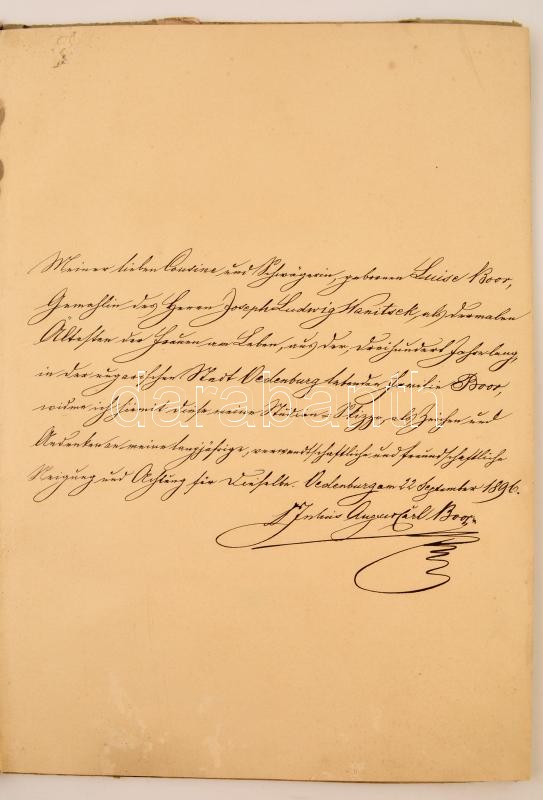 Meiner lieben Cousine und Schwägerin, geborenen Luise Boor,
Gemahlin des Herrn Joseph Ludwig Wanitsek, als dermalen
Ältesten der Frauen am Leben, aus der, dreihundert Jahre lang,
in der ungarischen Stadt Oedenburg lebenden Familie Boor,
widme ich hiemit diese meine Skizze, als Zeichen und
Andenken an meine langjährige, verwandtschaftliche und freundschaftliche
Neigung und Achtung für Dieselbe. Oedenburg am 22 September 1896.
Julius August Carl Boor
darabanth